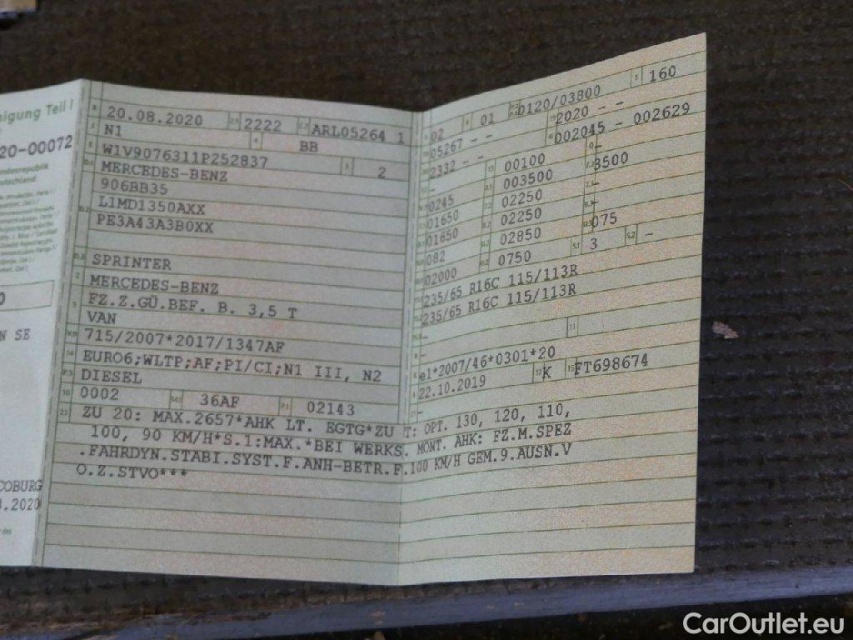 igung Teil I
20-00072
N SE
COBURG
.2020
20.08.2020 2222 ARL05264 1
N1 BB
W1V9076311P252837 2
MERCEDES-BENZ
906BB35
L1MD1350AXX
PE3A43A3B0XX
SPRINTER
MERCEDES-BENZ
FZ.Z.GÜ.BEF. B. 3,5 T
VAN
715/2007*2017/1347AF
EURO6;WLTP;AF;PI/CI;N1 III, N2
DIESEL
0002 36AF 02143
02 01 0120/03800 160
05267 -- 2020 --
2332 -- 002045 - 002629
00100
0245 003500 3500
01650 02250
01650 02250
082 02850 075
02000 0750 3 -
235/65 R16C 115/113R
235/65 R16C 115/113R
e1*2007/46*0301*20
22.10.2019 K FT698674
ZU 20: MAX.2657*AHK LT. EGTG*ZU T: OPT. 130, 120, 110,
100, 90 KM/H*S.1:MAX.*BEI WERKS. MONT. AHK: FZ.M.SPEZ
.FAHRDYN.STABI.SYST.F.ANH-BETR.F.100 KM/H GEM.9.AUSN.V
O.Z.STVO***
CarOutlet.eu